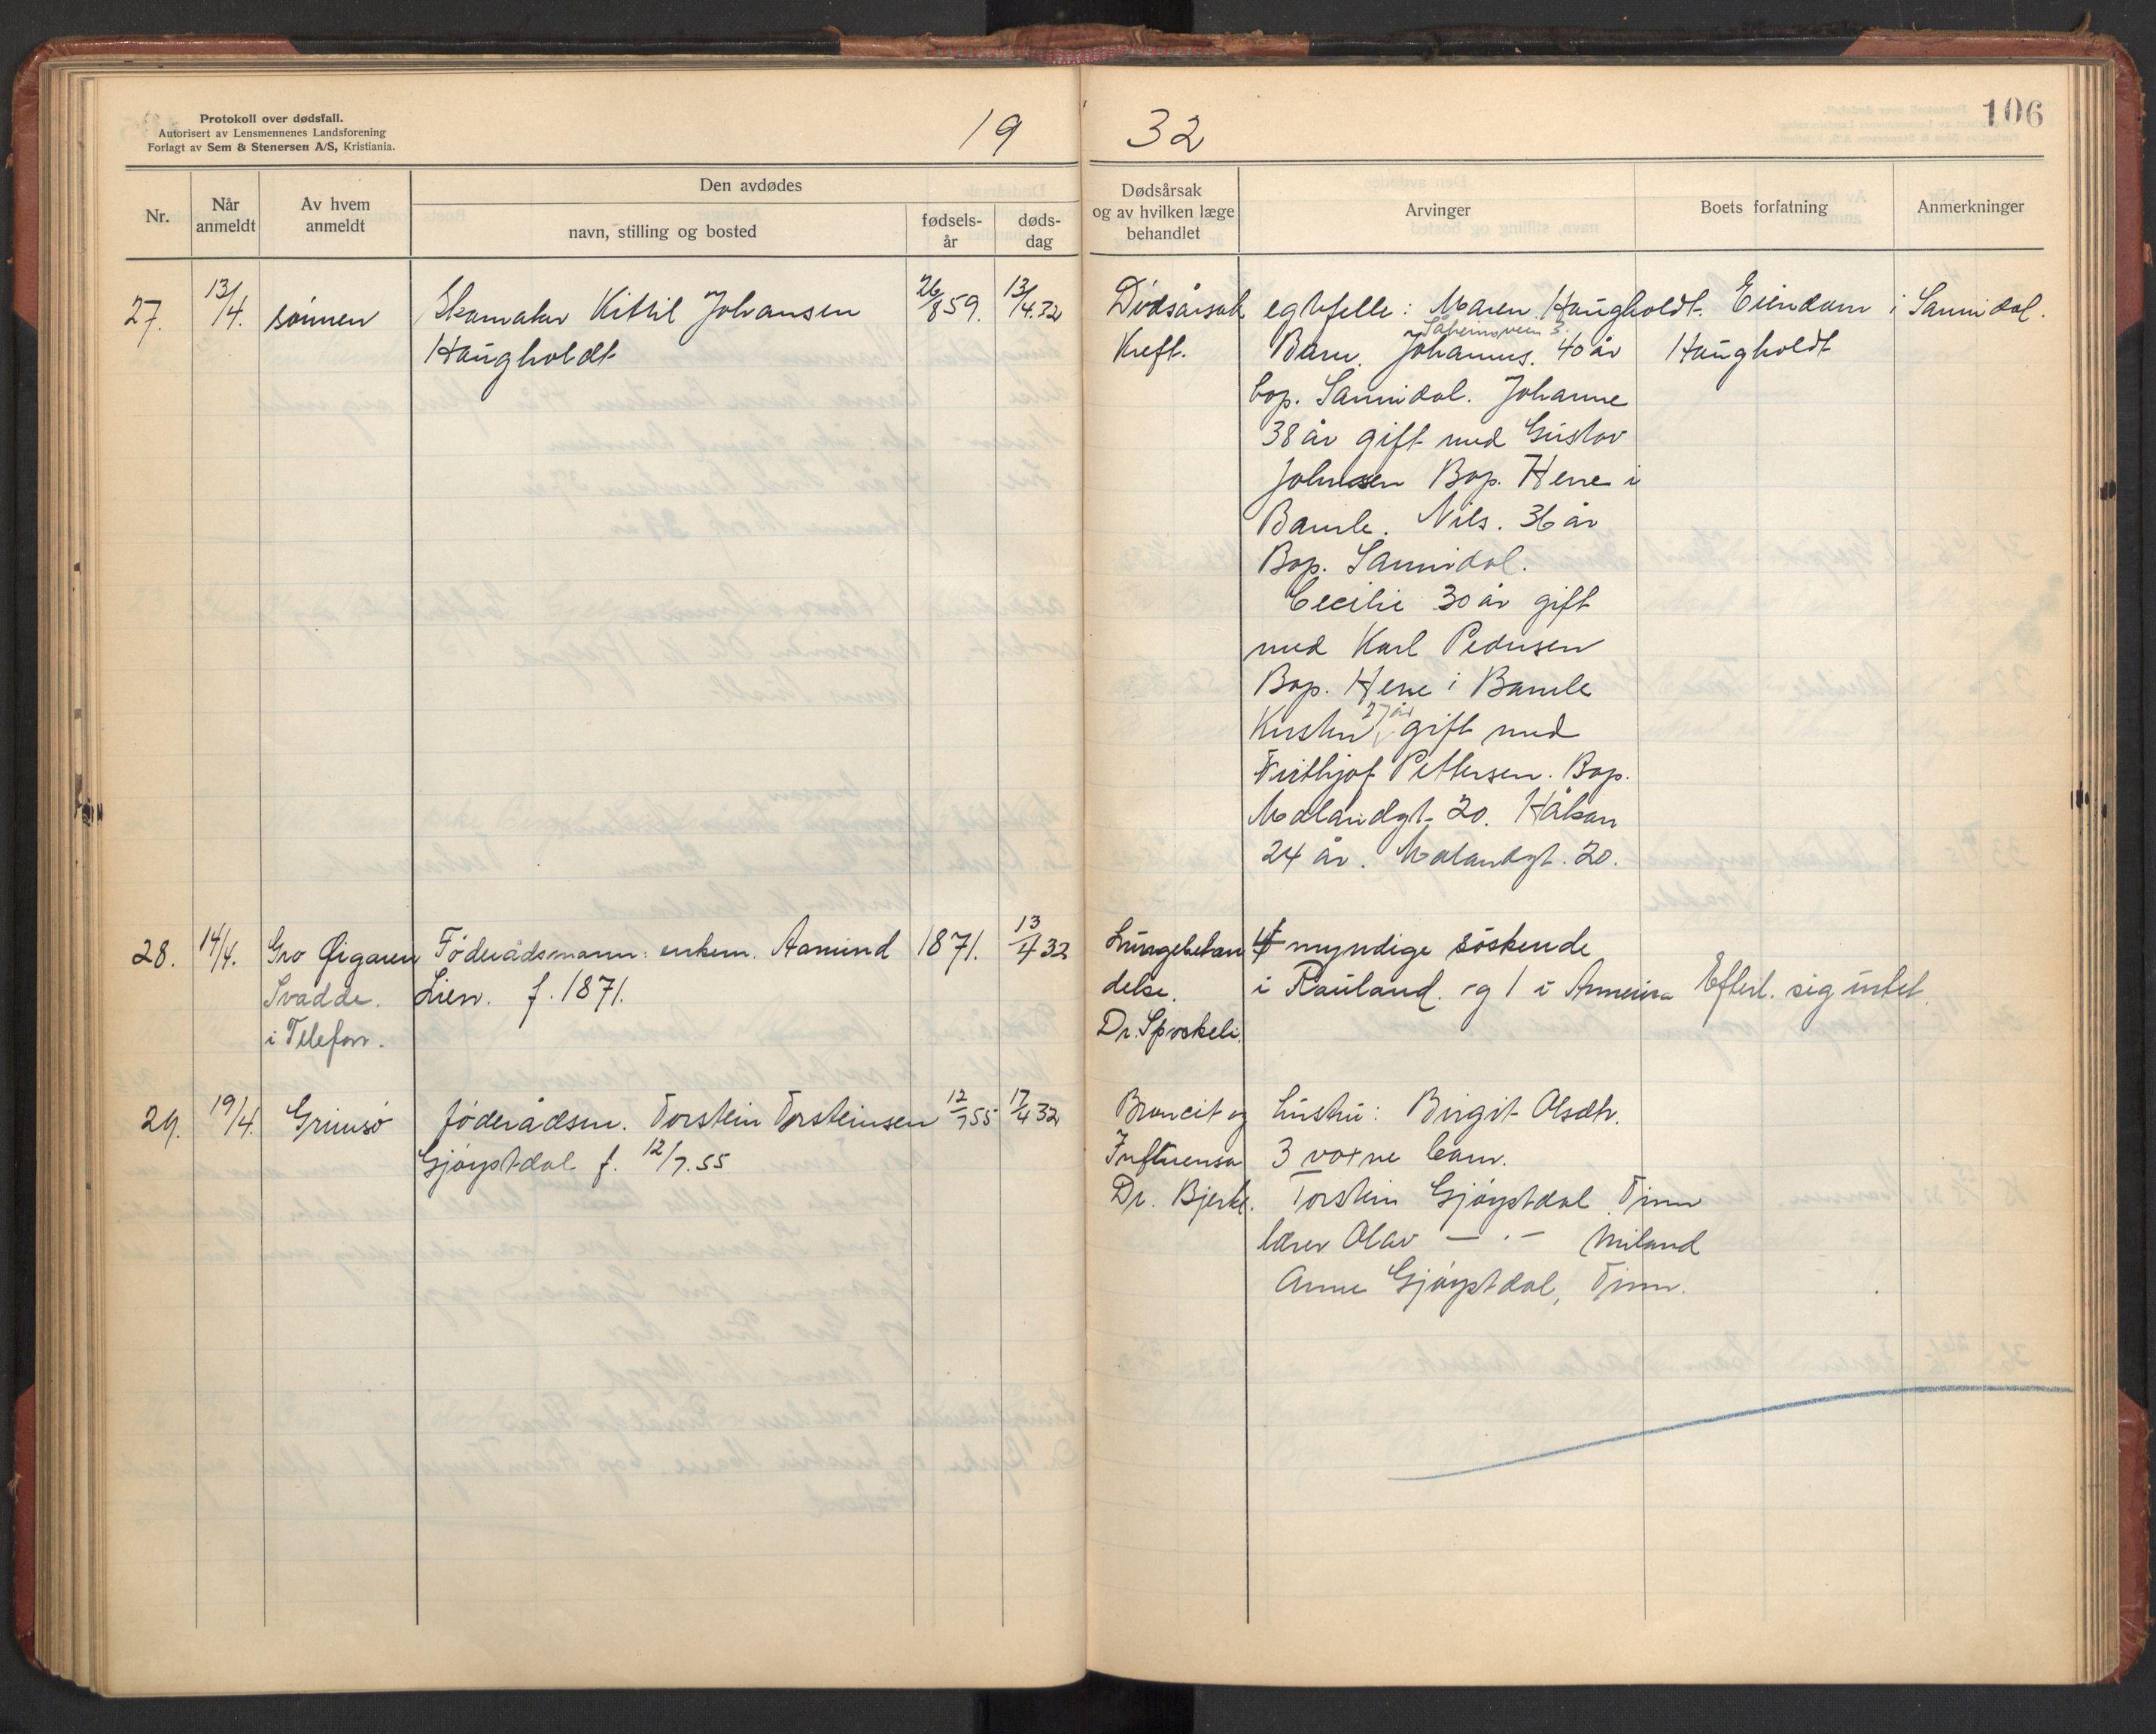 Protokoll over dødsfall.
Autorisert av Lensmennenes Landsforening
Forlagt av Sem & Stenersen A/S, Kristiania.
19 32
106
Nr.
Når anmeldt
Av hvem anmeldt
Den avdødes
navn, stilling og bosted
fødsels-år
døds-dag
Dødsårsak og av hvilken læge behandlet
Arvinger
Boets forfatning
Anmerkninger
27. 13/4. sønnen Skomaker Kittil Johansen 26/8 59. 13/4.32 Dødsårsak egtefelle: Maren Haugholdt. Eiendom i Sannidal.
Haugholdt Kreft. Barn. Johannes. 40 år Haugholdt
bop. Sannidal. Johanne
38 år gift med Gustav
Johnsen Bop. Herre i
Bamle. Nils. 36 år
Bop. Sannidal.
Cecilie 30 år gift
med Karl Pedersen
Bop. Herre i Bamle
Kirsten 27 år gift med
Frithjof Pettersen. Bop.
Mælandgt. 20. Håkon
24 år. Mælandgt. 20.
28. 14/4. Gro Øigaren Føderådsmann: enkem. Aamund 1871. 13/4 32 Lungebetæn 4 myndige søskende
Svadde. Lien. f. 1871. delse. i Rauland. og 1 i Amerika Efterl. sig intet.
i Telefon. Dr. Sproskeli.
29. 19/4. Grimsø føderådsm. Torstein Torsteinsen 12/7 55 17/4 32 Broncit og hustru: Birgit Olsdtr.
Gjøystdal f. 12/7.55 Influensa 3 voxne barn.
Dr. Bjerke. Torstein Gjøystdal Tinn
lærer Olav — . — Miland
Anne Gjøystdal, Tinn.